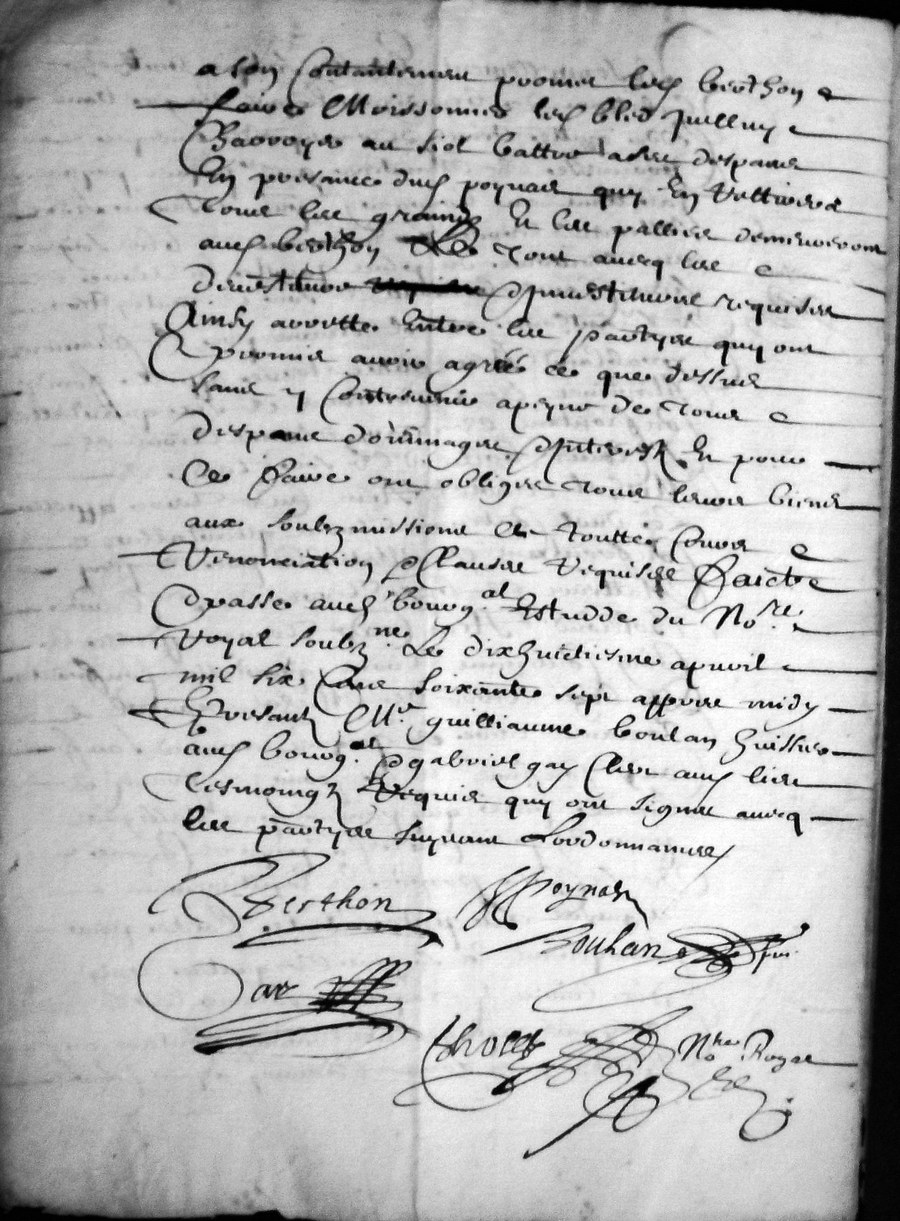 a son Contantement promis led. berthon
faire Moissonner lesd. bledz
Charroyer au Siol battre a ses despans
En presance dud. poynard quy En Rettirera
Tous les grains Et les pallies demeureront
aud. berthon Le Tout avecq les
devestiture dinvestiture requises
Ainsy arrette Entre les partyes quy ont
promis avoir agreé ce que dessus
sans y Contrevenir a peyne de Tous
despans dommages dinterestz Et pour
Ce faire ont oblige Tous leurs biens
aux soubzmissions et Touttes Cours
Renonciation & Clauses Requises Faict &
passe aud. bourg.al Estudde du No.re
Royal soubz.ne Le dixhuictiesme apvril
mil six Cens soixante sept appres midy
Presantz M.e guilliaume boulan huissier
aud. bourg.al & gabriel gay Clerc aud. lieu
Tesmoingz Requis quy ont signes avecq
les partyes suyvant Lordonnances
Berthon Poynard
Bouhan
Gay
No.re Royal